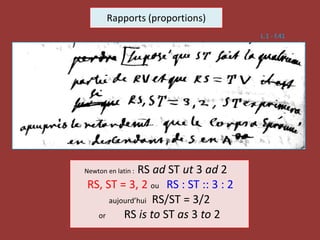 Rapports (proportions)
L.1 - f.41
perdre [Suposé que ST soit la quatriem
partie de RV et que RS = TV
que RS, ST = 3, 2, ST exprimera
le retardement que le corps
Newton en latin : RS ad ST ut 3 ad 2
RS, ST = 3, 2 ou RS : ST :: 3 : 2
aujourd’hui RS/ST = 3/2
or RS is to ST as 3 to 2